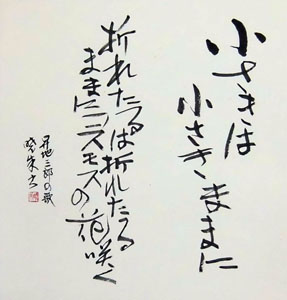 小さきは
小さきままに
折れたるは折れたる
ままにコスモスの花咲く
昇地三郎の歌